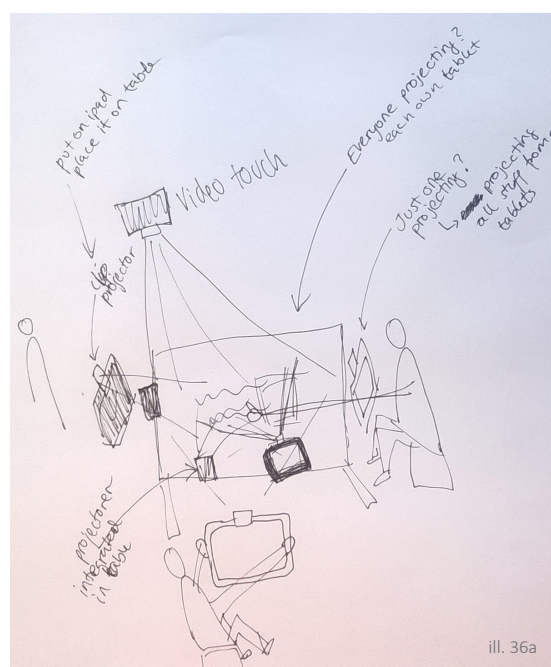 put on ipad
place it on table
clip
projector
Video touch
Everyone projecting?
each own tablet
Just one
projecting?
↳ projecting
all stuff from
tablets
projectorer
integrated
in table
ill. 36a